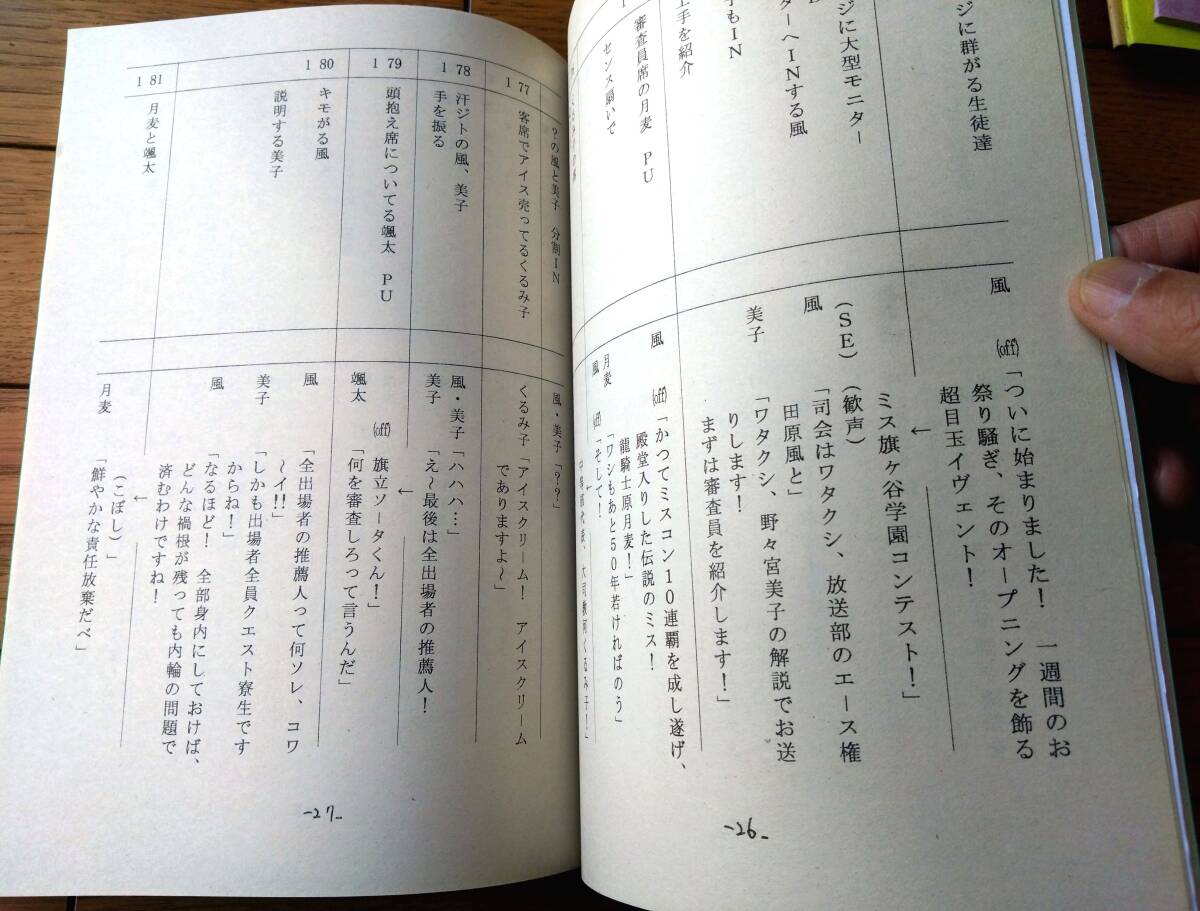 ジに群がる生徒達
風
(off)「ついに始まりました！　一週間のお
祭り騒ぎ、そのオープニングを飾る
超目玉イヴェント！
←
ミス旗ヶ谷学園コンテスト！」
ジに大型モニター
(SE)
(歓声)
ターへINする風
風
「司会はワタクシ、放送部のエース権
田原風と」
美子
「ワタクシ、野々宮美子の解説でお送
りします！
子もIN
まずは審査員を紹介します！」
上手を紹介
審査員席の月麦　PU
風
(off)「かつてミスコン10連覇を成し遂げ、
殿堂入りした伝説のミス！
龍騎士原月麦！」
センス扇いで
月麦
「ワシもあと50年若ければのう」
風
(off)「そして！
-26-
？の風と美子　分割IN
風・美子「？？」
177
客席でアイス売ってるくるみ子
くるみ子「アイスクリーム！　アイスクリーム
でありますよ～」
178
汗ジトの風、美子
手を振る
風・美子「ハハハ…」
美子
「え～最後は全出場者の推薦人！
←
179
頭抱え席についてる颯太　PU
(off)
旗立ソータくん！」
颯太
「何を審査しろって言うんだ」
180
キモがる風
風
「全出場者の推薦人って何ソレ、コワ
～イ!!」
説明する美子
美子
「しかも出場者全員クエスト寮生です
からね！」
風
「なるほど！　全部身内にしておけば、
どんな禍根が残っても内輪の問題で
済むわけですね！
←
181
月麦と颯太
(こぼし)」
月麦
「鮮やかな責任放棄だべ」
-27-